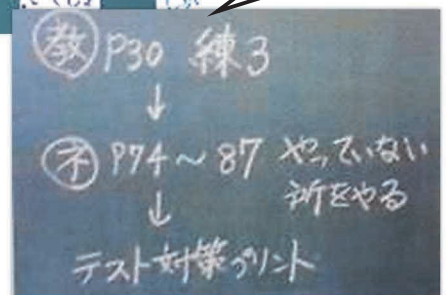 教 P30 練3
↓
ネ P74～87 やっていない
所をやる
↓
テスト対策プリント